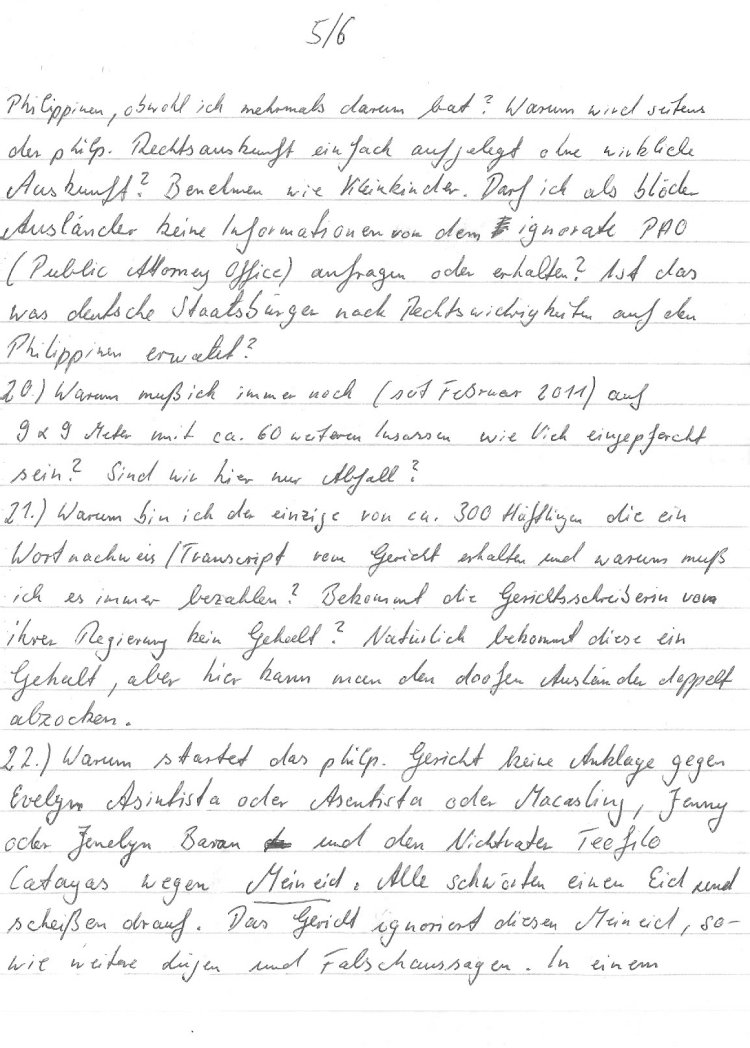 5/6
Philippinen, obwohl ich mehrmals darum bat? Warum wird seitens
der philp. Rechtsauskunft einfach aufgelegt ohne wirkliche
Auskunft? Benehmen wie Kleinkinder. Darf ich als blöder
Ausländer keine Informationen von dem ignorate PAO
(Public Attorney Office) anfragen oder erhalten? Ist das
was deutsche Staatsbürger nach Rechtswidrigkeiten auf den
Philippinen erwatet?
20) Warum muß ich immer noch (seit Februar 2011) auf
9 x 9 Meter mit ca. 60 weiteren Insassen wie Vieh eingepfercht
sein? Sind wir hier nur Abfall?
21.) Warum bin ich der einzige von ca. 300 Häftlingen die ein
Wortnachweis/Transcript vom Gericht erhalten und warum muß
ich es immer bezahlen? Bekommt die Gerichtsschreiberin von
ihrer Regierung kein Gehalt? Natürlich bekommt diese ein
Gehalt, aber hier kann man den doofen Ausländer doppelt
abzocken.
22.) Warum startet das philp. Gericht keine Anklage gegen
Evelyn Asintista oder Asentista oder Macasling, Jenny
oder Jenelyn Baran und den Nichtvater Teofilo
Catayas wegen Meineid. Alle schwörten einen Eid und
scheißen drauf. Das Gericht ignoriert diesen Meineid, so-
wie weitere Lügen und Falschaussagen. In einem